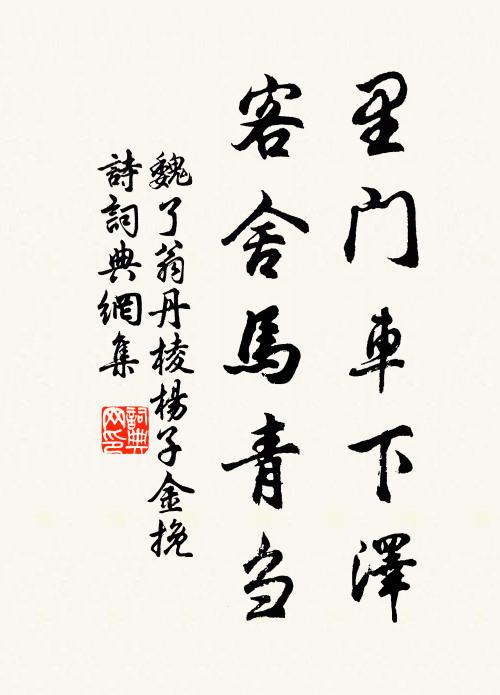 里门車下澤
客舍馬青芻
魏了翁丹棱楊子金挽
詩詞典網集
詞典网印